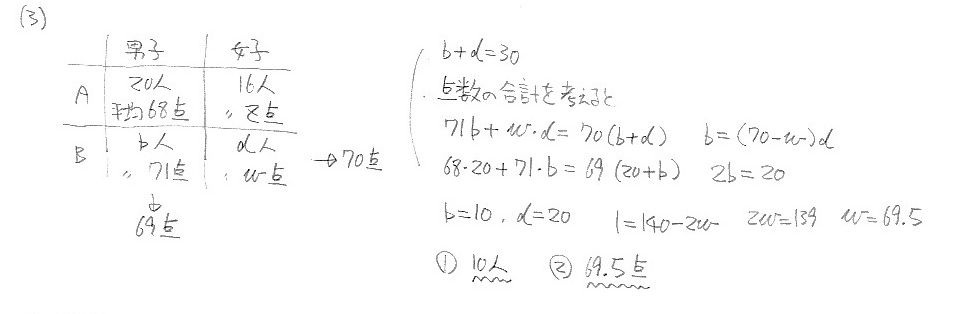 (3)
男子 女子
A 20人 16人
平均68点 〃 z点
B b人 d人
〃 71点 〃 w点 → 70点
↓
69点
b+d=30
点数の合計を考えると
71b+w·d=70(b+d) b=(70-w)d
68·20+71·b=69(20+b) 2b=20
b=10, d=20 1=140-2w 2w=139 w=69.5
① 10人 ② 69.5点